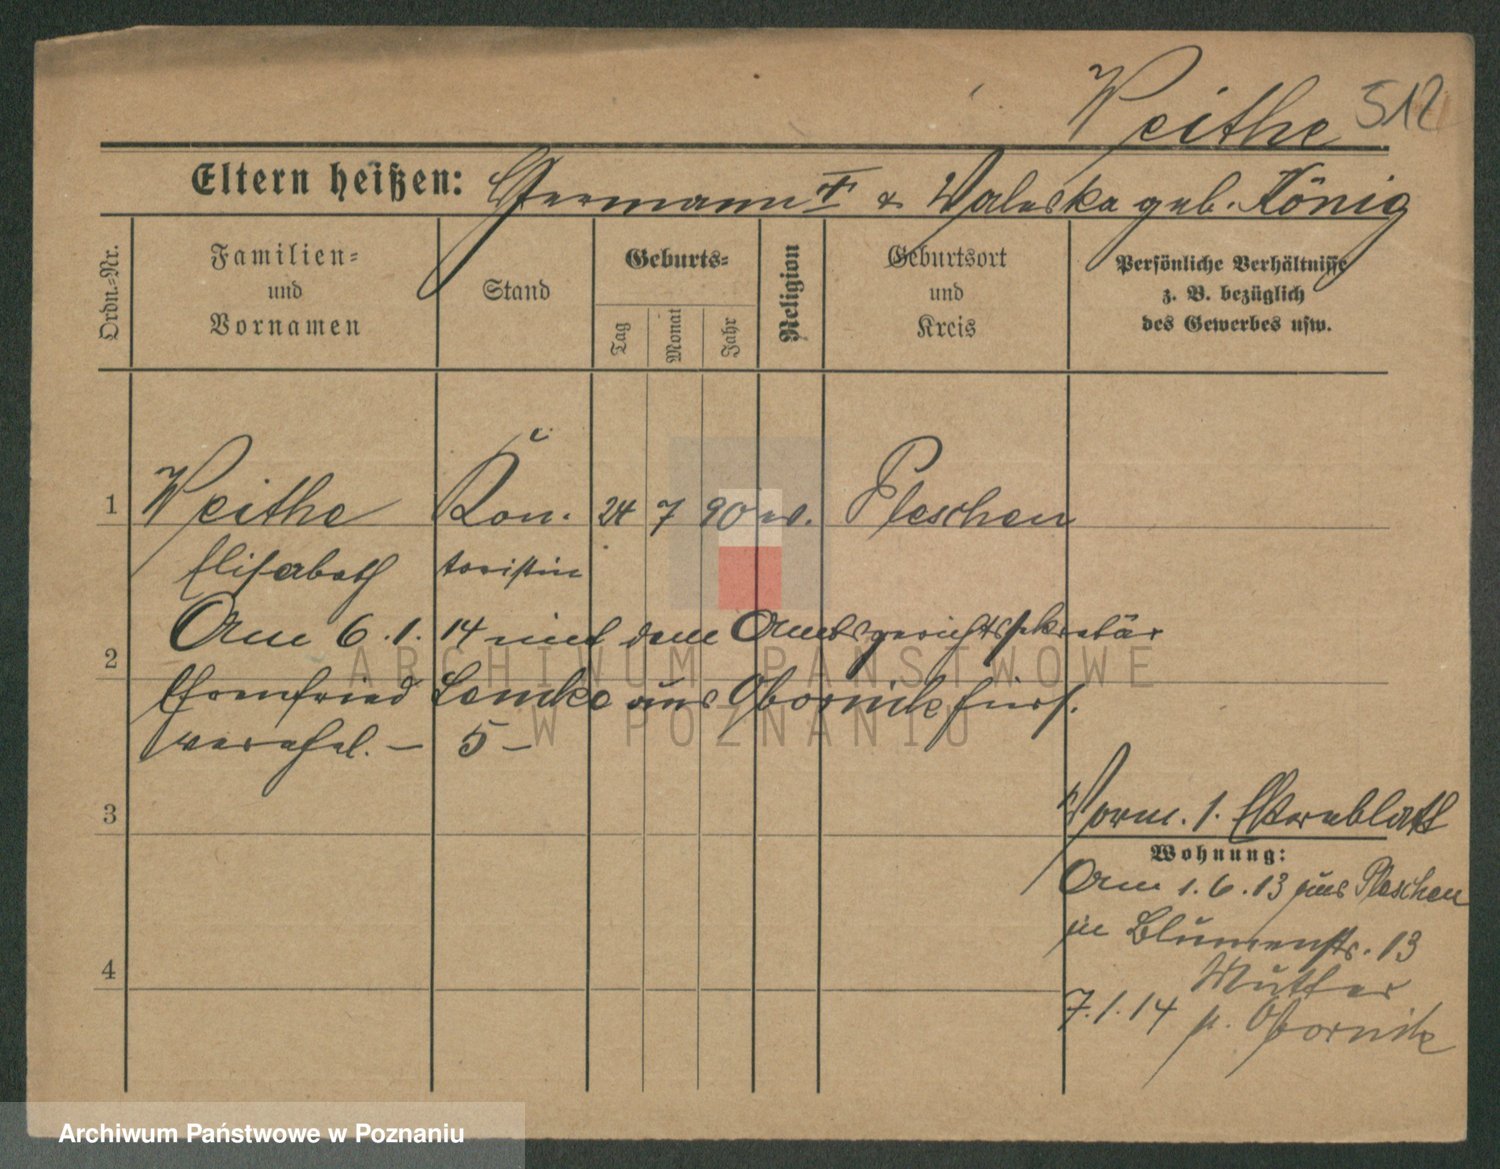 Weithe 512
Eltern heißen: Hermann † & Waleska geb. König
Ordn.-Nr.
Familien-
und
Vornamen
Stand
Geburts-
Tag
Monat
Jahr
Religion
Geburtsort
und
Kreis
Persönliche Verhältnisse
z. B. bezüglich
des Gewerbes usw.
1 Weithe Kon- 24 7 90 ev. Pleschen
Elisabeth toristin
Am 6.1.14 mit dem Amtsgerichtssekretär
2
Ehrenfried Lemke aus Obornik hier
verehel. – 5 –
3
Vorm. s. Elternblatt
Wohnung:
Am 1.6.13 aus Pleschen
in Blumenstr. 13
4
Mutter
7.1.14 n. Obornik
ARCHIWUM PAŃSTWOWE
W POZNANIU
Archiwum Państwowe w Poznaniu